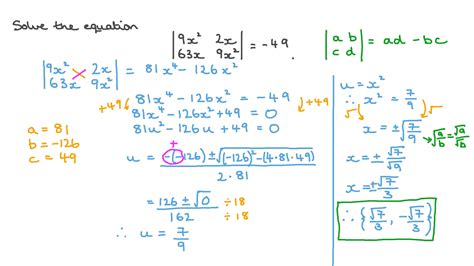 Solve the equation
|9x² 2x|
|63x 9x²| = -49.
|a b|
|c d| = ad - bc
|9x² 2x|
|63x 9x²| = 81x⁴ - 126x²
81x⁴ - 126x² = -49
+49 +49
81x⁴ - 126x² + 49 = 0
81u² - 126u + 49 = 0
a = 81
b = -126
c = 49
+
u = -(-126) ± √((-126)² - (4·81·49))
2·81
= 126 ± √0 ÷18
162 ÷18
∴ u = 7/9
u = x²
∴ x² = 7/9
√ √
x = ±√(7/9) √(a/b) = √a/√b
x = ± √7/√9
x = ± √7/3
∴ {√7/3, -√7/3}